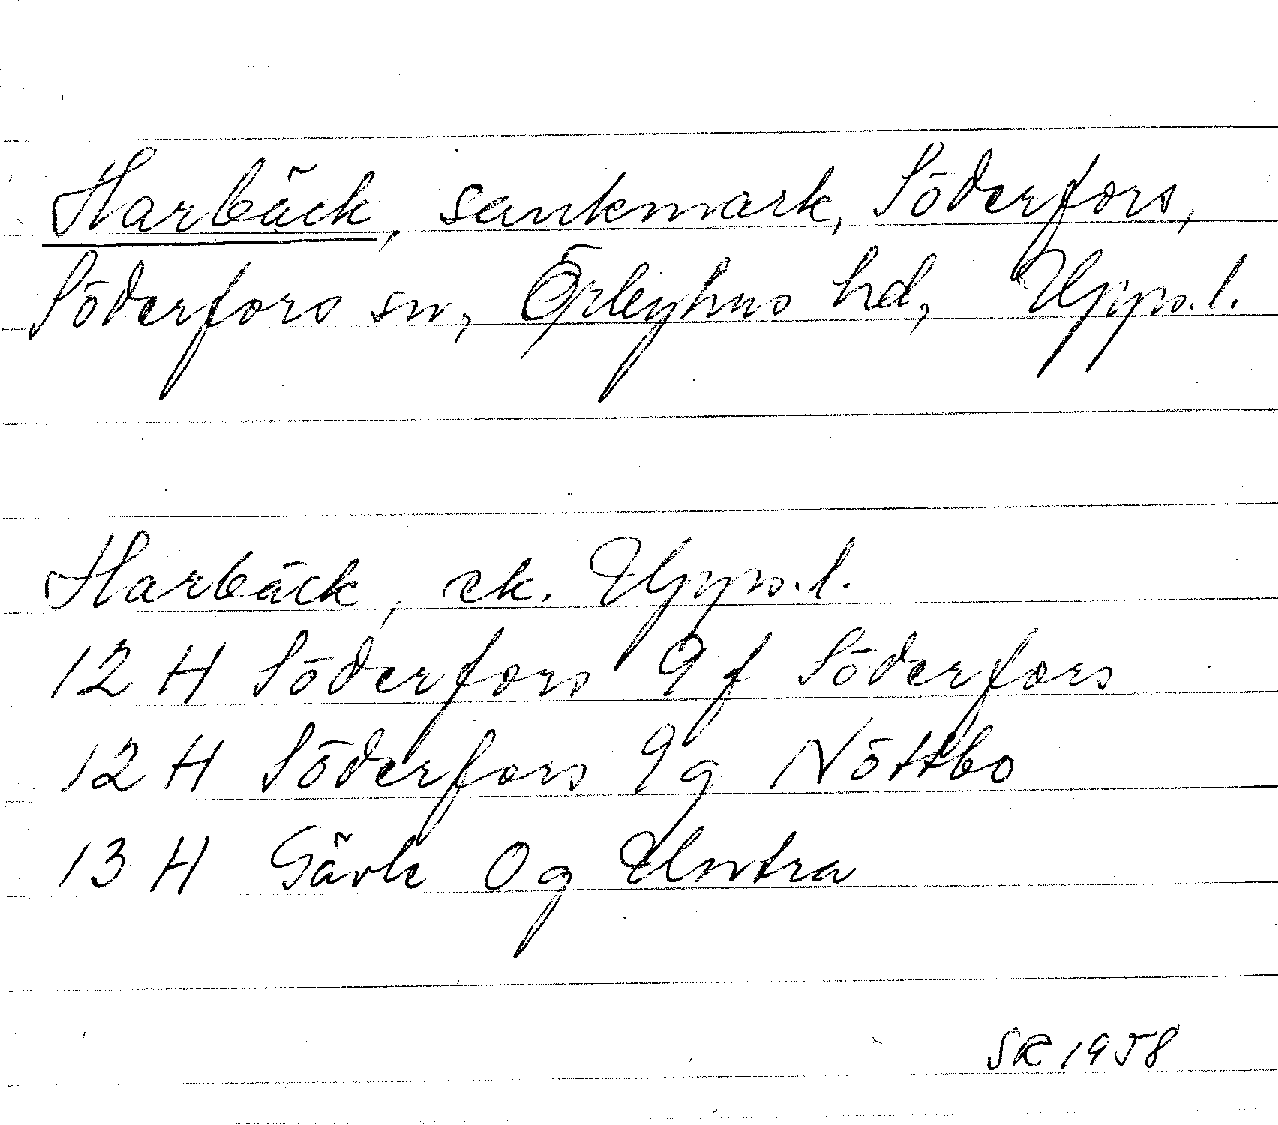 Harbäck, sankmark, Söderfors,
Söderfors sn, Örbyhus hd, Upps. l.
Harbäck, ek. Upps. l.
12 H Söderfors 9 f Söderfors
12 H Söderfors 9 g Nöttbo
13 H Gävle 0 g Untra
SR 1958